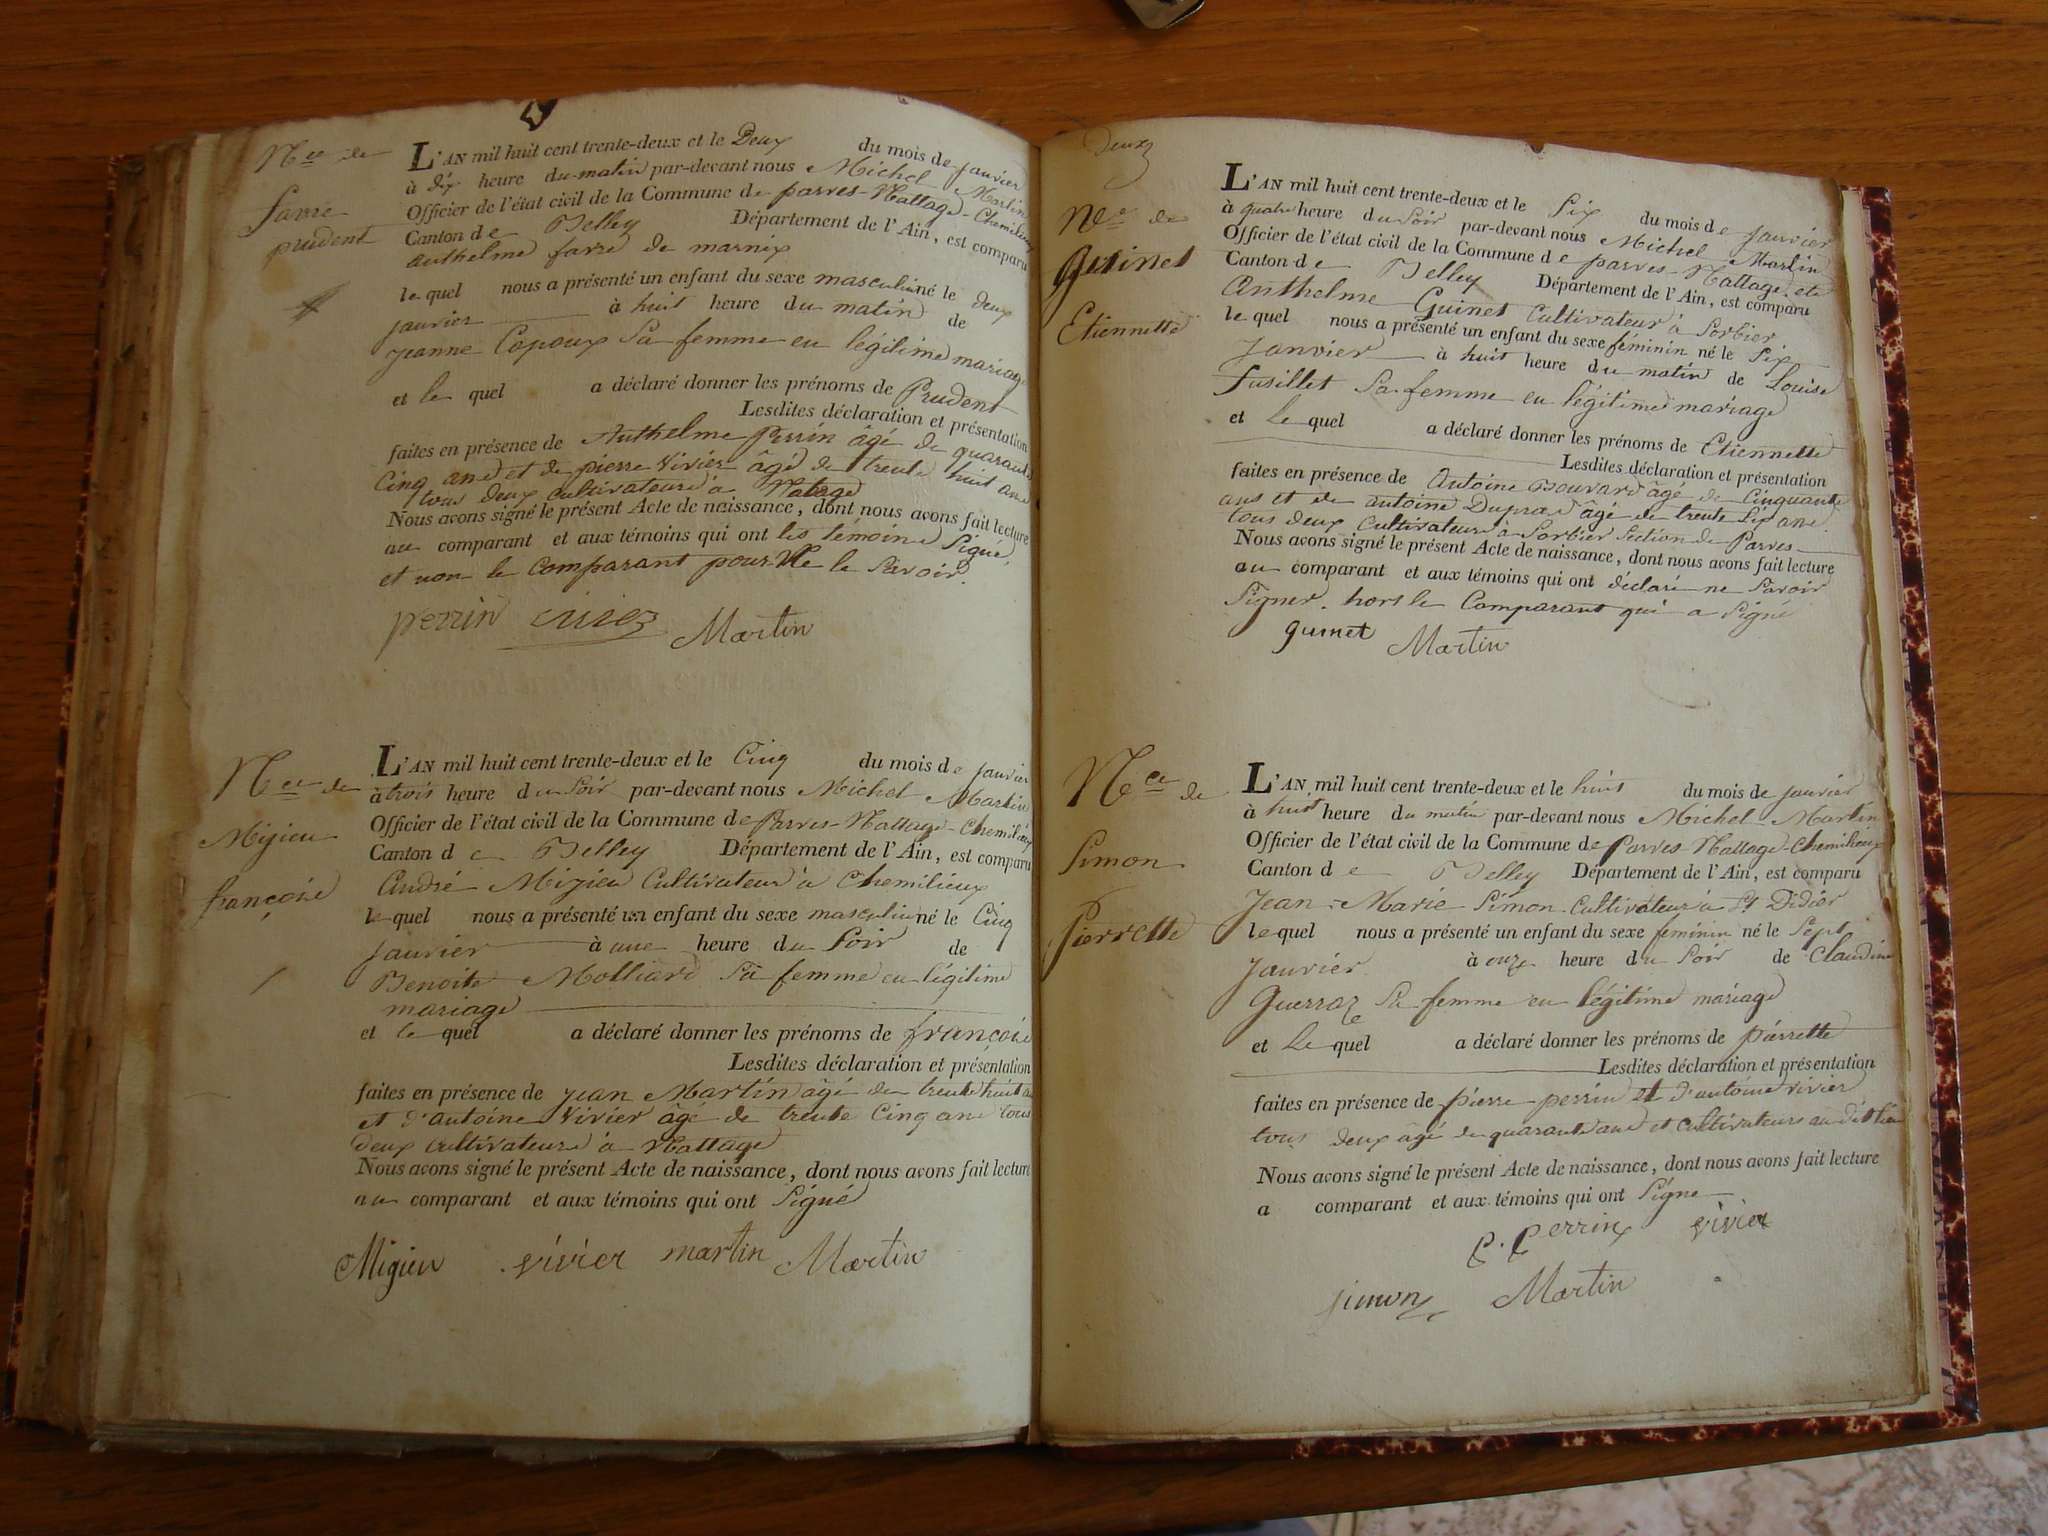 Nce de
farre
prudent
L'AN mil huit cent trente-deux et le Deux du mois de janvier
à dix heure du matin par-devant nous Michel Martin
Officier de l'état civil de la Commune de parves-Nattage-Chemilieux
Canton de Belley Département de l'Ain, est comparu
anthelme farre de marnix
le quel nous a présenté un enfant du sexe masculin né le deux
janvier à huit heure du matin de
jeanne Capoux Sa femme en légitime mariage
et le quel a déclaré donner les prénoms de Prudent
Lesdites déclaration et présentation
faites en présence de Anthelme Perrin âgé de quarante
Cinq ans et de pierre Vivier âgé de trente huit ans
tous deux cultivateurs à Natage
Nous avons signé le présent Acte de naissance, dont nous avons fait lecture
au comparant et aux témoins qui ont les témoins Signé,
et non le Comparant pour Ne le Savoir.
perrin vivier Martin
Nce de
Mijieu
françois
L'AN mil huit cent trente-deux et le Cinq du mois de janvier
à trois heure du Soir par-devant nous Michel Martin
Officier de l'état civil de la Commune de Parves-Nattage-Chemilieux
Canton de Belley Département de l'Ain, est comparu
André Mijieu Cultivateur à Chemilieux
le quel nous a présenté un enfant du sexe masculin né le Cinq
janvier à une heure du Soir de
Benoite Molliard Sa femme en légitime
mariage
et le quel a déclaré donner les prénoms de françois
Lesdites déclaration et présentation
faites en présence de jean Martin âgé de trente huit
et d'antoine Vivier âgé de trente Cinq ans tous
deux cultivateurs à Nattage
Nous avons signé le présent Acte de naissance, dont nous avons fait lecture
au comparant et aux témoins qui ont Signé
Migieu vivier martin Martin
Deux
Nce de
Guinet
Etiennette
L'AN mil huit cent trente-deux et le Six du mois de janvier
à quatre heure du Soir par-devant nous Michel Martin
Officier de l'état civil de la Commune de parves-Nattage etc
Canton de Belley Département de l'Ain, est comparu
Anthelme Guinet Cultivateur à Sorbier
le quel nous a présenté un enfant du sexe féminin né le Six
Janvier à huit heure du matin de Louise
Fusillet Sa femme en légitime mariage
et Le quel a déclaré donner les prénoms de Etiennette
Lesdites déclaration et présentation
faites en présence de Antoine Bouvard âgé de Cinquante
ans et de antoine Dupraz âgé de trente Six ans
tous deux Cultivateurs à Sorbier Section de Parves
Nous avons signé le présent Acte de naissance, dont nous avons fait lecture
au comparant et aux témoins qui ont déclaré ne Savoir
Signer. hors le Comparant qui a Signé
guinet Martin
Nce de
Simon
Pierrette
L'AN mil huit cent trente-deux et le huit du mois de janvier
à huit heure du matin par-devant nous Michel Martin
Officier de l'état civil de la Commune de Parves-Nattage-Chemilieux
Canton de Belley Département de l'Ain, est comparu
Jean-Marie Simon Cultivateur à St Didier
le quel nous a présenté un enfant du sexe feminin né le Sept
Janvier à onze heure du Soir de Claudine
Guerraz Sa femme en légitime mariage
et Le quel a déclaré donner les prénoms de pierrette
Lesdites déclaration et présentation
faites en présence de pierre perrin et d'antoine vivier
tous deux âgé de quarante ans et Cultivateurs au dit lieu
Nous avons signé le présent Acte de naissance, dont nous avons fait lecture
a comparant et aux témoins qui ont Signé
P. Perrin vivier
simon Martin